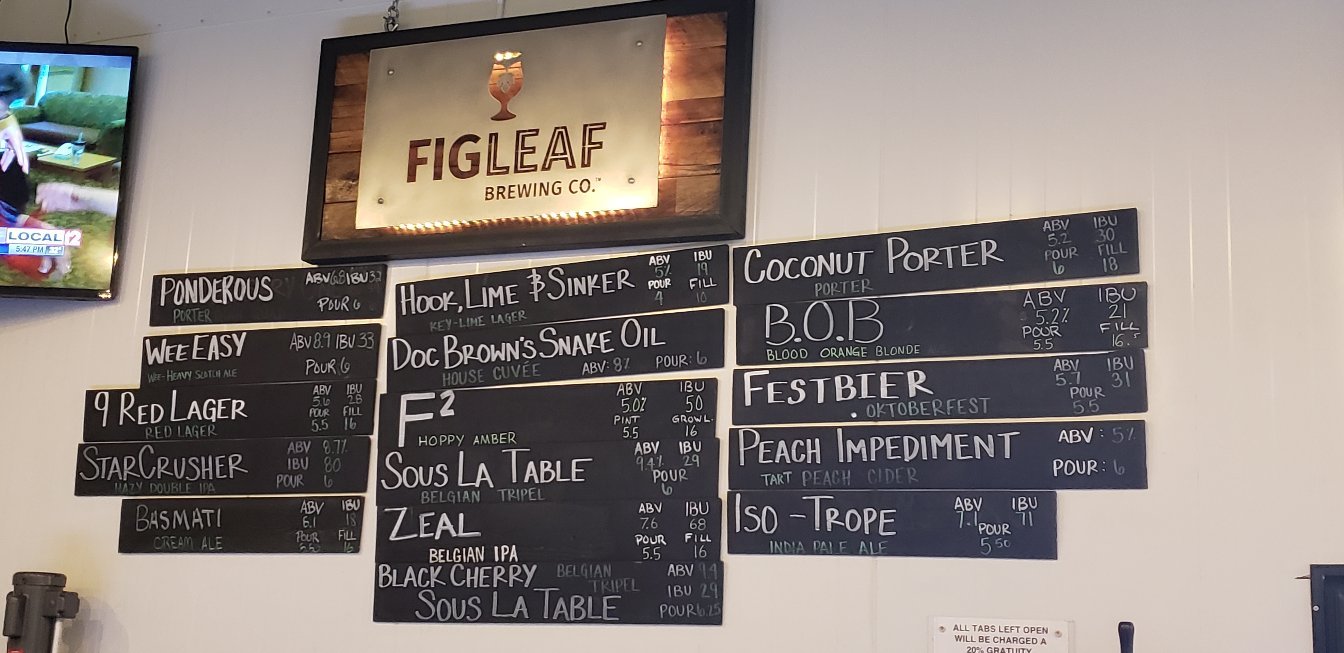 LOCAL 12
5:47 PM
FIGLEAF
BREWING CO.™
PONDEROUS ABV 6.8 IBU 32
PORTER POUR 6
WEE EASY ABV 8.9 IBU 33
WEE-HEAVY SCOTCH ALE POUR 6
9 RED LAGER ABV IBU
5.6 28
RED LAGER POUR FILL
5.5 16
STARCRUSHER ABV 8.7%
IBU 80
HAZY DOUBLE IPA POUR 6
BASMATI ABV IBU
6.1 18
CREAM ALE POUR FILL
5.50 16
HOOK, LIME & SINKER ABV IBU
5% 19
KEY-LIME LAGER POUR FILL
4 10
DOC BROWN'S SNAKE OIL
HOUSE CUVÉE ABV: 8% POUR: 6
F² ABV IBU
5.0% 50
HOPPY AMBER PINT GROWL.
5.5 16
SOUS LA TABLE ABV IBU
9.4% 29
BELGIAN TRIPEL POUR
6
ZEAL ABV IBU
7.6 68
BELGIAN IPA POUR FILL
5.5 16
BLACK CHERRY BELGIAN TRIPEL ABV 9.4
SOUS LA TABLE IBU 29
POUR 6.25
COCONUT PORTER ABV IBU
5.2 30
PORTER POUR FILL
6 18
B.O.B ABV IBU
5.2% 21
BLOOD ORANGE BLONDE POUR FILL
5.5 16.5
FESTBIER ABV IBU
5.7 31
OKTOBERFEST POUR
5.5
PEACH IMPEDIMENT ABV: 5%
TART PEACH CIDER POUR: 6
ISO-TROPE ABV IBU
7.1 71
INDIA PALE ALE POUR
5.50
ALL TABS LEFT OPEN
WILL BE CHARGED A
20% GRATUITY